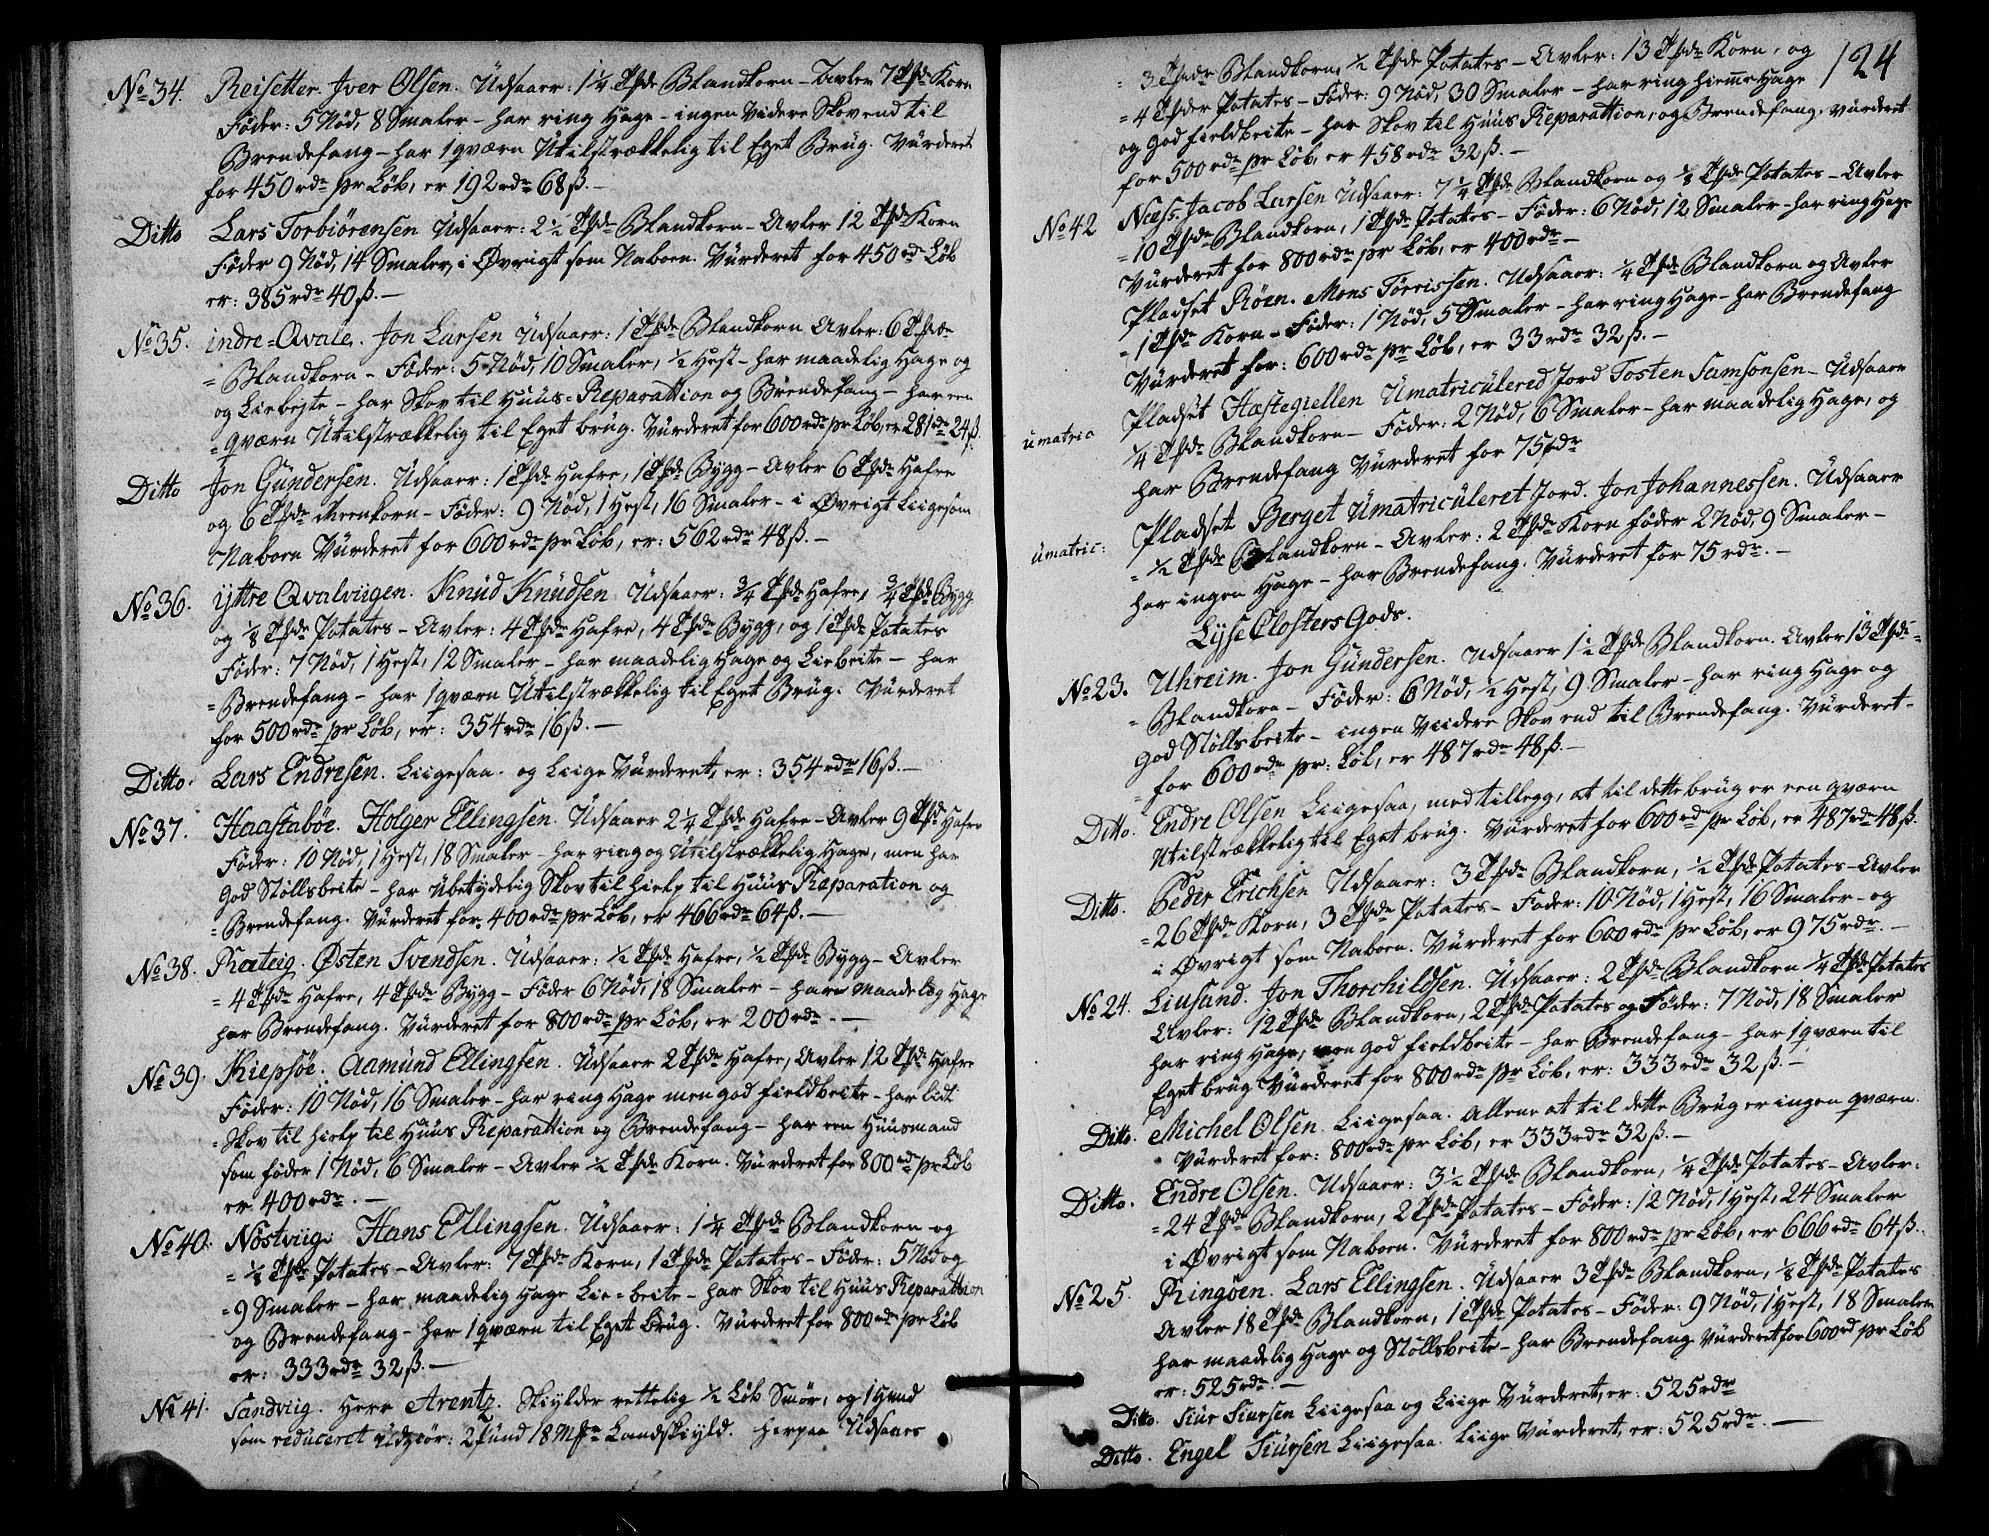 No 34. Reisetter. Iver Olsen. Udsaaer: 1¼ Tønde Blandkorn – Avler 7 Tønde Korn
Føder: 5 Nød, 8 Smaler – har ring Hage – ingen videre Skov end til
Brendefang – har 1 qværn Utilstrækkelig til Eget Brug. Vurderet
for 450 rdr pr Løb, er 192 rdr 68 ß. –
Ditto Lars Torbiörensen Udsaaer: 2½ Tde Blandkorn – Avler 12 Tde Korn
Føder 9 Nød, 14 Smaler, i Øvrigt som Naboen. Vurderet for 450 rd Løb
er: 385 rdr 40 ß. –
No 35. indre=Qvale. Jon Larsen Udsaaer: 1 Tde Blandkorn Avler: 6 Tde
= Blandkorn – Føder: 5 Nød, 10 Smaler, ½ Hest – har maadelig Hage og
og Liebejte – har Skov til Huus=Reparattion og Brendefang – har een
= qværn Utilstrækkelig til Eget brug. Vurderet for 600 rdr pr Løb, er 281 rdr 24 ß.
Ditto Jon Gundersen. Udsaaer: 1 Tde Hafre, 1 Tde Bygg – Avler 6 Tde Hafre
og 6 Tde Meenkorn – Føder: 9 Nød, 1 Hest, 16 Smaler – i Øvrigt Liigesom
Naboen Vurderet for 600 rdr pr Løb, er: 562 rdr 48 ß. –
No 36. Yttre Qvalviigen. Knud Knudsen. Udsaaer: ¾ Tde Hafre, ¾ Tde Bygg
og ⅛ Tde Potates – Avler: 4 Tde Hafre, 4 Tde Bygg, og 1 Tde Potates
Føder: 7 Nød, 1 Hest, 12 Smaler – har maadelig Hage og Liebeite – har
= Brendefang – har 1 qværn Utilstrækkelig til Eget Brug. Vurderet
for 500 rdr pr Løb, er: 354 rdr 16 ß. –
Ditto. Lars Endresen. Liigesaa. og Liige Vurderet, er: 354 rdr 16 ß. –
No 37. Haastabøe. Holger Ellingsen. Udsaaer 2¼ Tde Hafre – Avler 9 Tde Hafre
Føder: 10 Nød, 1 Hest, 18 Smaler – har ring og Utilstrækkelig Hage, men har
God Støllsbeite – har Ubetydelig Skov til hielp til Huus Reparation og
= Brendefang. Vurderet for 400 rdr pr Løb, er 466 rdr 64 ß. –
No 38. Rateig. Østen Svendsen. Udsaaer: ½ Tde Hafre, ½ Tde Bygg – Avler
= 4 Tde Hafre, 4 Tde Bygg – Føder 6 Nød, 18 Smaler – har Maadeleg Hage
har Brendefang. Vurderet for 800 rdr pr Løb, er 200 rdr. –
No 39. Kiepsøe. Aamund Ellingsen. Udsaaer 2 Tde Hafre, Avler 12 Tde Hafre
Føder: 10 Nød, 16 Smaler – har ring Hage men god fieldbeite – har lidt
= Skov til hielp til Huus Reparattion og Brendefang – har een Huusmand
som føder 1 Nød, 6 Smaler – Avler ½ Tde Korn. Vurderet for 800 rdr pr Løb
er 400 rdr. –
No 40. Nøstviig. Hans Ellingsen. Udsaaer: 1¼ Tde Blandkorn og
= ⅛ Tde Potates – Avler: 7 Tde Korn, 1 Tde Potates – Føder: 5 Nød og
= 9 Smaler – har maadelig Hage Lie=beite – har Skov til Huus Reparattion
og Brendefang – har 1 qværn til Eget Brug. Vurderet for 800 rdr pr Løb
er: 333 rdr 32 ß. –
No 41. Sandviig. Herr Arentz. Skylder rettelig ½ Løb Smør, og 1 Huud
som reduceret Udgiør: 2 Pund 18 Mk Landskyld. herpaa Udsaaes
124
= 3 Tde Blandkorn, ½ Tde Potates – Avler: 13 Tde Korn, og
= 4 Tder Potates – Føder: 9 Nød, 30 Smaler – har ring hieme Hage
og God fieldbeite – har Skov til Huus Reparattion, og Brendefang. vurderet
for 500 rdr pr Løb, er 458 rdr 32 ß. –
No 42 Næss. Jacob Larsen Udsaaer: 7¼ Tde Blandkorn og ⅛ Tde Potates – Avler
= 10 Tde Blandkorn, 1 Tde Potates – Føder: 6 Nød, 12 Smaler – har ring Hage
Vurderet for 800 rdr pr Løb, er 400 rdr –
Pladset Røen. Mons Torrissen. Udsaaer: ¼ Tde Blandkorn og Avler
= 1 Tde Korn – Føder: 1 Nød, 5 Smaler – har ring Hage – har Brendefang
Vurderet for: 600 rdr pr Løb, er 33 rdr 32 ß. –
umatric Pladset Hæstegiellen Umatriculered Jord Tosten Samsonsen – Udsaaer
¼ Tde Blandkorn – Føder: 2 Nød, 6 Smaler – har maadelig Hage, og
har Brendefang Vurderet for 75 rdr
umatric: Pladset Berget Umatriculeret Jord. Jon Johannessen. Udsaaer
= ½ Tde Blandkorn – Avler: 2 Tde Korn føder 2 Nød, 9 Smaler –
har ingen Hage – har Brendefang. Vurderet for 75 rdr. –
Lyse Closters Gods.
No 23. Uhreim. Jon Gundersen. Udsaaer 1½ Tde Blandkorn. Avler 13 Tde =
= Blandkorn – Føder: 6 Nød, ½ Hest, 9 Smaler – har ring Hage og
God Støllsbeite – ingen Viidere Skov end til Brendefang. Vurderet =
= for 600 rdr pr: Løb, er 487 rdr 48 ß. –
Ditto. Endre Olsen Liigesaa, med tillegg, at til dette brug er een qværn
Utilstrækkelig til Eget brug. Vurderet for 600 rdr pr Løb, er 487 rdr 48 ß.
Ditto. Peder Erichsen Udsaaer: 3 Tde Blandkorn, ½ Tde Potates – Avler
= 26 Tde Korn, 3 Tde Potates – Føder: 10 Nød, 1 Hest, 16 Smaler – og
i Øvrigt som Naboen. Vurderet for 600 rdr pr Løb, er 975 rdr. –
No 24. Liusand. Jon Thorchildsen. Udsaaer: 2 Tde Blandkorn ¼ Tde Potates
Avler: 12 Tde Blandkorn, 2 Tde Potates og Føder: 7 Nød, 18 Smaler
har ring Hage, men god fieldbeite – har Brendefang – har 1 qværn til
Eget brug Vurderet for 800 rdr pr Løb, er: 333 rdr 32 ß. –
Ditto. Michel Olsen. Liigesaa. Allene at til dette Brug er ingen qværn.
Vurderet for: 800 rdr pr Løb, er 333 rdr 32 ß. –
Ditto. Endre Olsen. Udsaaer: 3½ Tde Blandkorn, ¼ Tde Potates – Avler:
= 24 Tde Blandkorn, 2 Tde Potates – Føder: 12 Nød, 1 Hest, 24 Smaler
i Øvrigt som Naboen. Vurderet for 800 rdr pr Løb, er 666 rdr 64 ß.
No 25. Ringøen. Lars Ellingsen. Udsaaer 3 Tde Blandkorn, ⅛ Tde Potates
Avler 18 Tde Blandkorn, 1 Tde Potates – Føder: 9 Nød, 1 Hest, 18 Smaler
har maadelig Hage og Støllsbeite – har Brendefang Vurderet for 600 rd pr Løb
er: 525 rdr. –
Ditto. Siur Siursen Liigesaa og Liige Vurderet, er: 525 rdr
Ditto. Engel Siursen Liigesaa. Liige Vurderet, er: 525 rdr. –